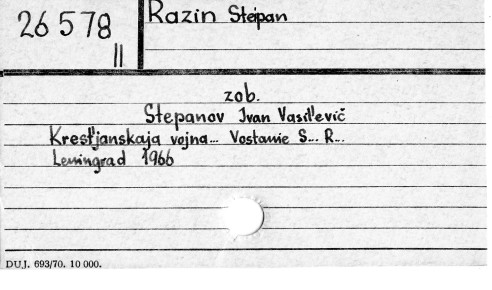 26 578
II
Razin Stepan
zob.
Stepanov Ivan Vasil'evič
Krest'janskaja vojna... Vostanie S... R...
Leningrad 1966
DUJ. 693/70. 10 000.